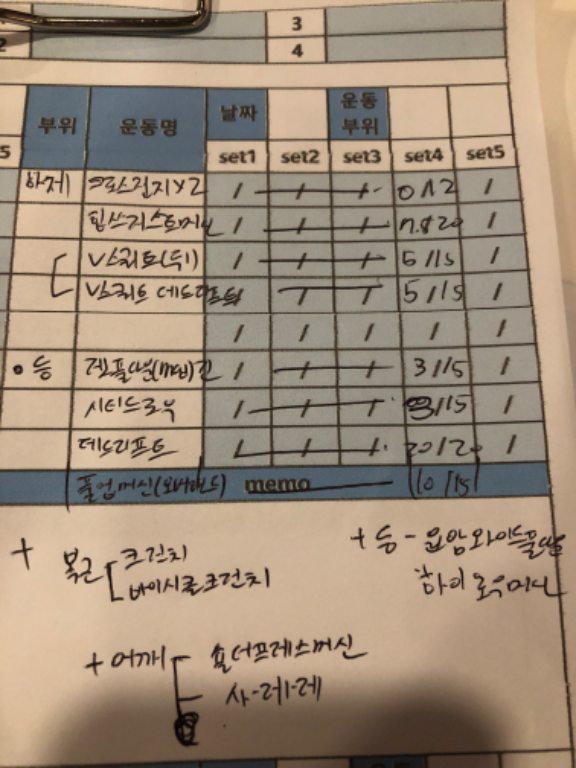 3
2 4
부위 운동명 날짜 운동 부위
5 set1 set2 set3 set4 set5
하체 크로스런지x2 / / / 0/12 /
힙쓰러스트머신 / / / 7.5/20 /
V스쿼트(뒤) / / / 5/15 /
V스쿼트 데드리프트 / / 5/15 /
/ / / / /
등 랫풀다운 / / / 3/15 /
시티드로우 / / / 3/15 /
데드리프트 / / / 20/20 /
풀업머신(오버핸드) memo 10/15
+ 복근 크런치
바이시클크런치
+ 등 - 원암와이드풀다운
하이로우머신
+ 어깨 숄더프레스머신
사-레-레